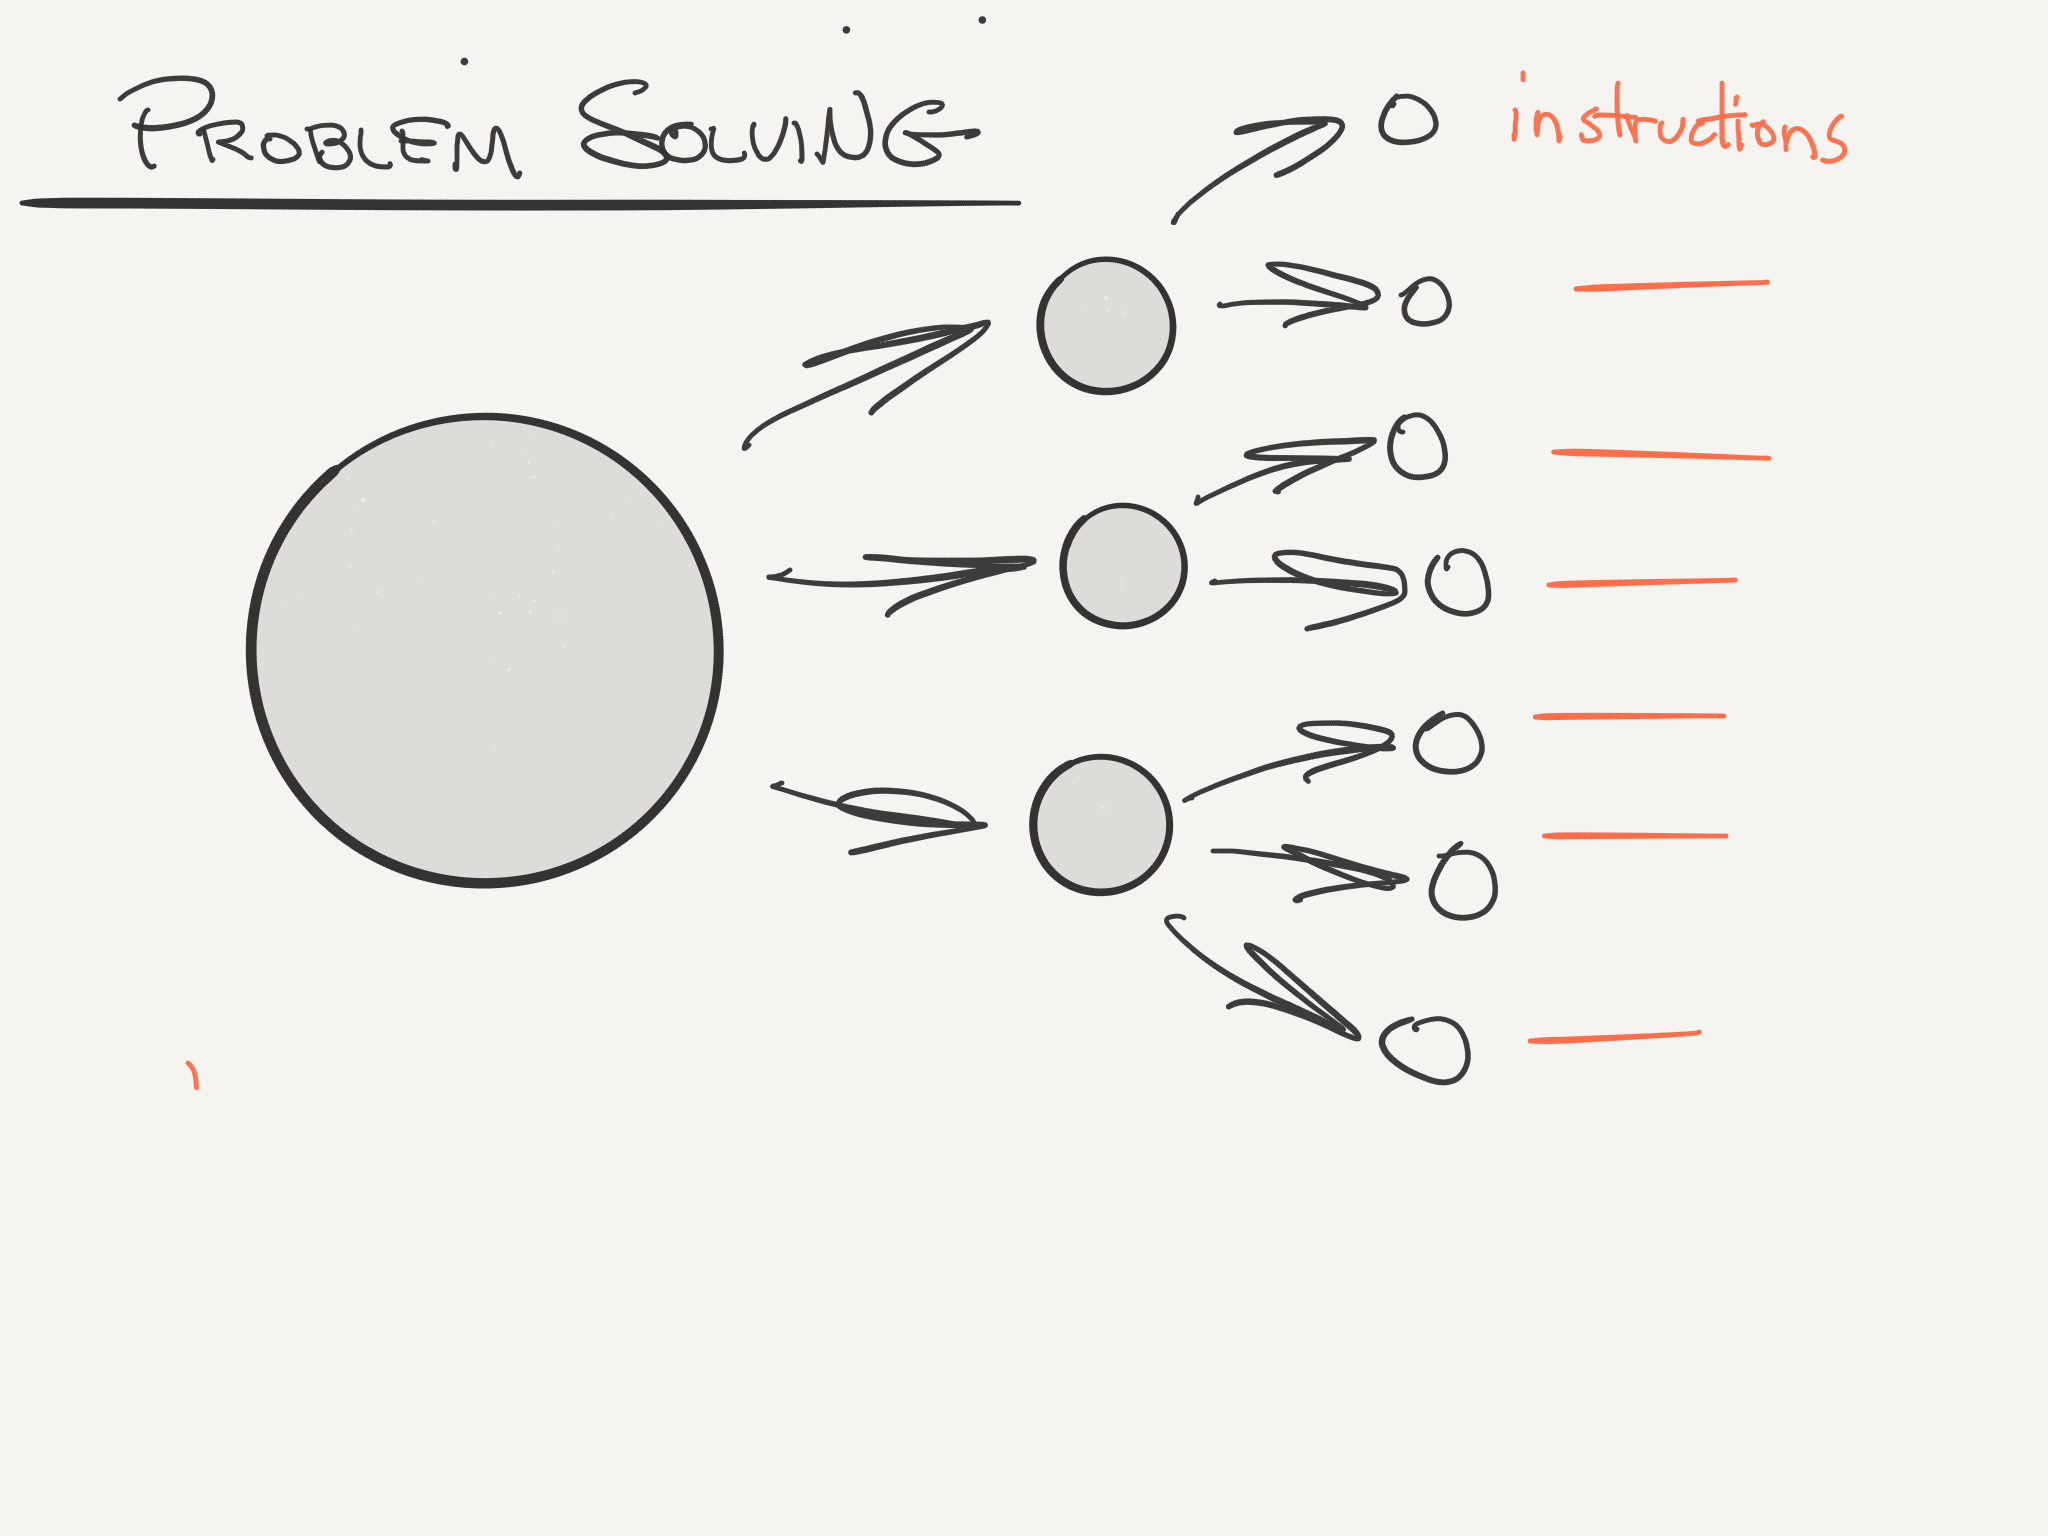 PROBLEM SOLVING
instructions